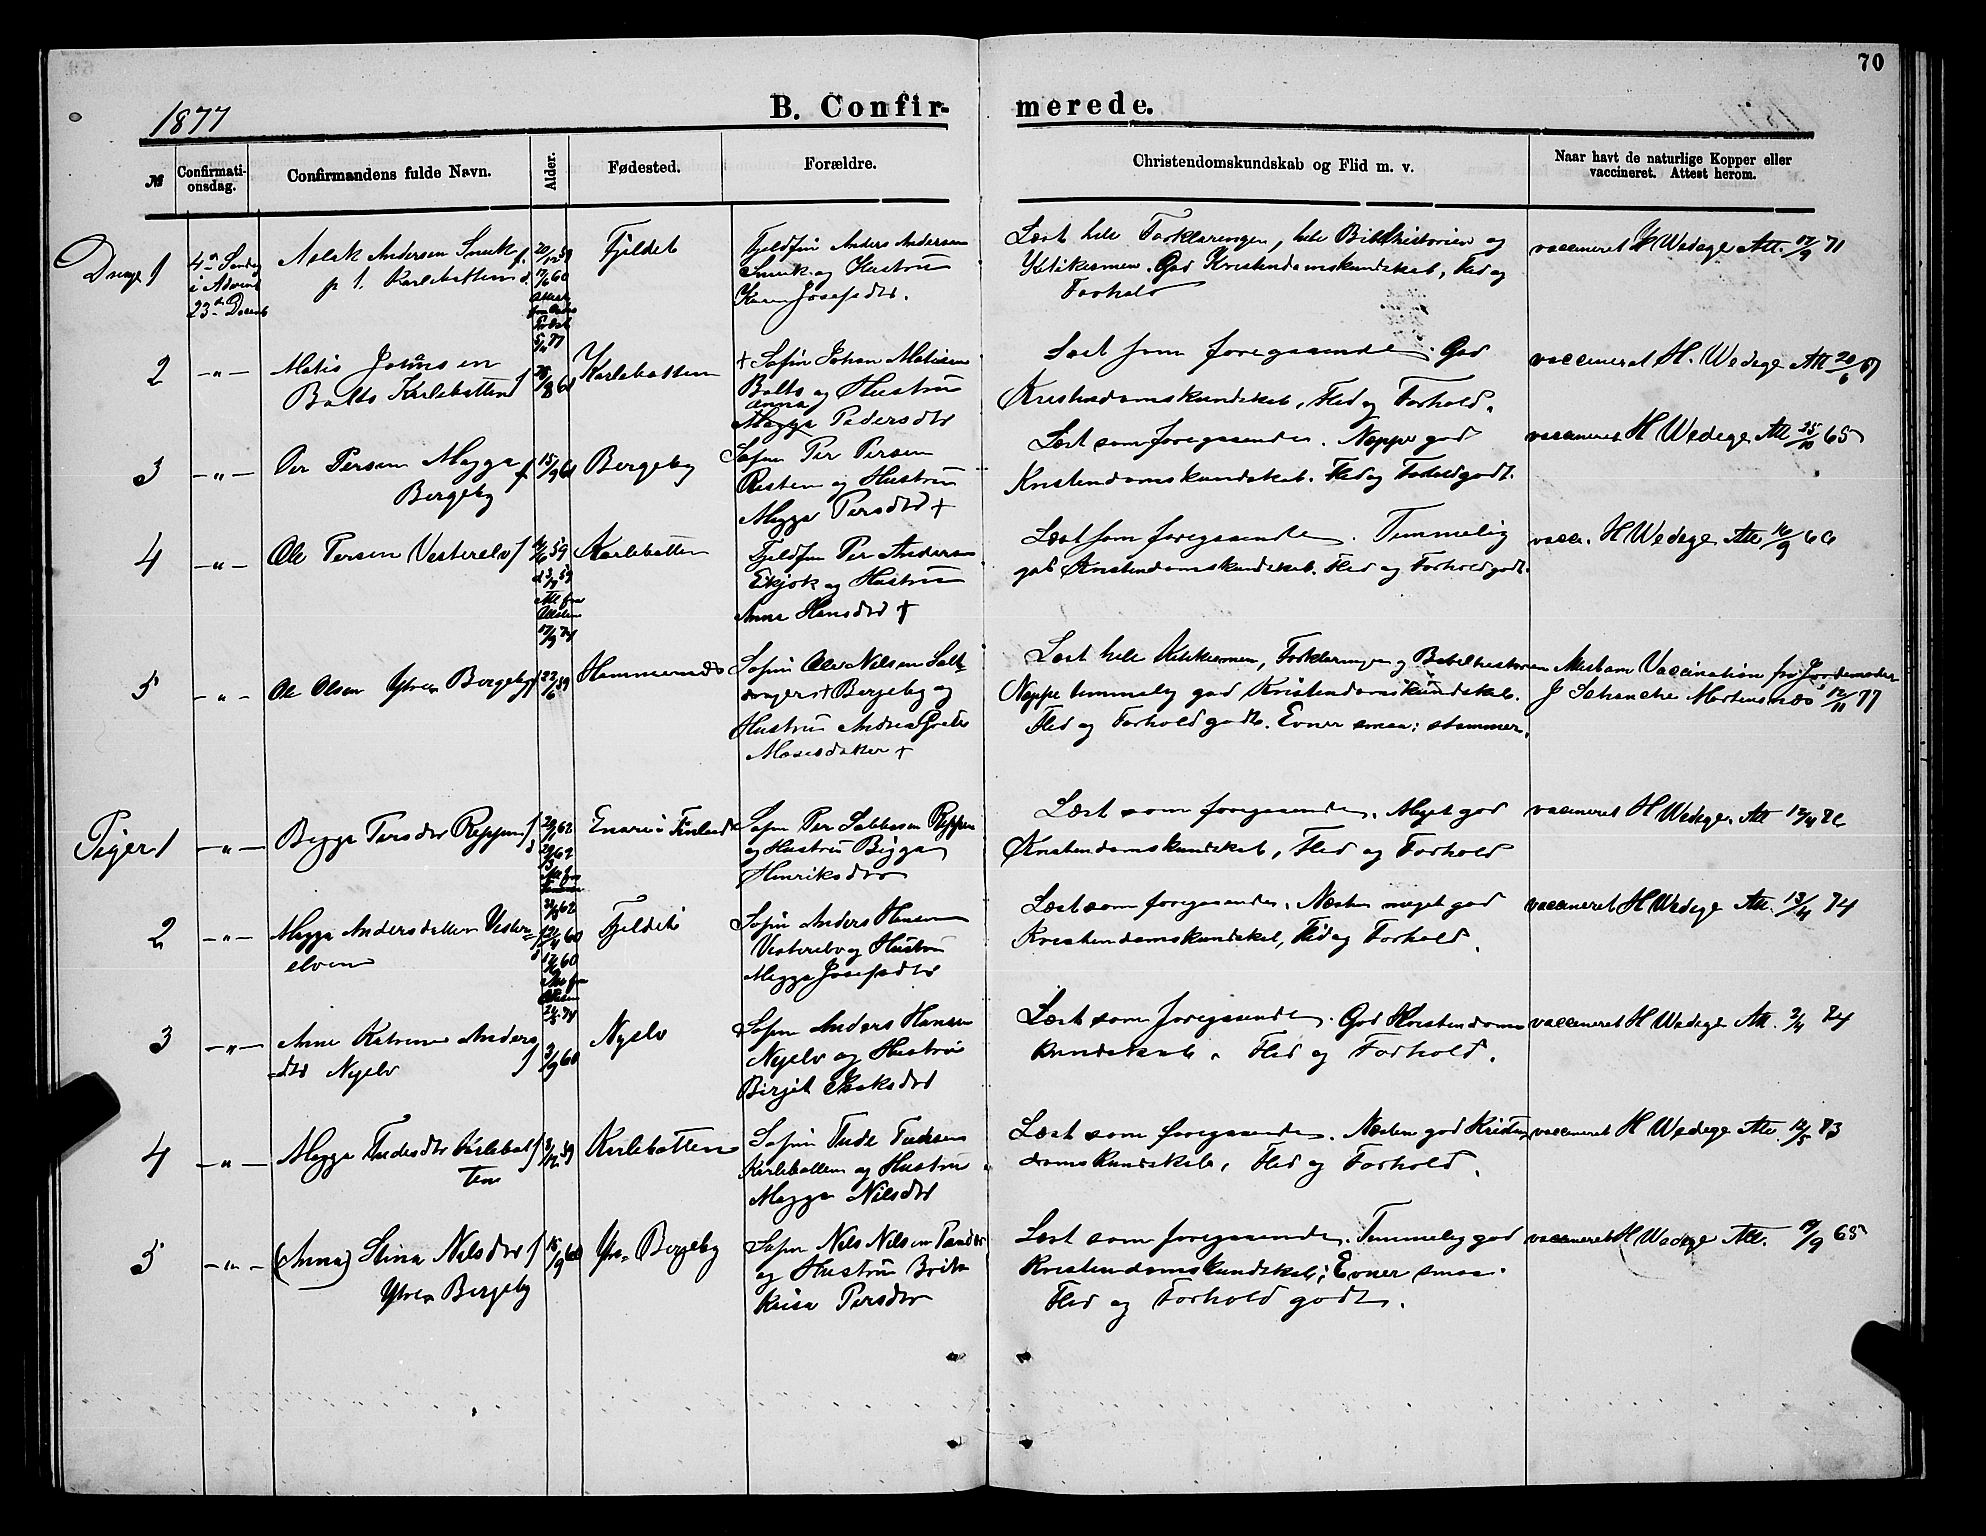 70
1877
B. Confirmerede.
№ Confirmationsdag. Confirmandens fulde Navn. Alder. Fødested. Forældre. Christendomskundskab og Flid m. v. Naar havt de naturlige Kopper eller vaccineret. Attest herom.
Drenge 1
4de Søndag
i Advent
23de Decemb
Andersen
p. t. Karlebatten
Fjeldet
Fjeldfin Anders Andersen
og Hustru
Josefsdtr.
Læst hele Forklaringen, hele Bibelhistorien og
God Kristendomskundskab, Flid og
Forhold
vaccineret H Wedege Att. 17/9 71
2 -"-
Matis Johnsen
Balto Karlebatten
Karlebatten
+ Søfin Johan Matisen
Balto og Hustru
Anna
Magga Pedersdtr
Læst som foregaaende. God
Kristendomskundskab, Flid og Forhold.
vaccineret H. Wedege Att
3 -"-
Per Persen Magga
Bergeby
Bergeby
Søfin Per Persen
og Hustru
Magga Persdtr +
Læst som foregaaende. Neppe god
Kristendomskundskab. Flid og Forhold godt.
vaccineret H Wedege Att 25/10 65
4 -"-
Ole Persen Vesterelv
Karlebatten
Fjeldfin Per Andersen
og Hustru
Anna Hansdtr +
Læst som foregaaende. Temmelig
god Kristendomskundskab. Flid og Forhold godt.
vacc. H Wedege Att 16/9 66
5 -"-
Ole Olsen Ytre Bergeby
Søfin Ole Nilsen
Bergeby og
Hustru Andrea Grete
Mosesdatter +
Læst hele Forklaringen og Bibelhistorien
Neppe temmelig god Kristendomskundskab.
Flid og Forhold godt. Evner smaa; stammer.
Vaccination fra Jordemoder
J Schanche Mortensnes 12/11 77
Piger 1 -"-
Bigga Persdtr Reppen
Enare i Finland
Søfin Per Sabbasen Reppen
og Hustru Bigga
Henriksdtr
Læst som foregaaende. Meget god
Kristendomskundskab, Flid og Forhold
vaccineret H Wedege. Att
2 -"-
Magga Andersdatter Vester-
elven
Fjeldet
Søfin Anders Hansen
Vesterelv og Hustru
Magga Josefsdtr
Læst som foregaaende. Næsten meget god
Kristendomskundskab, Flid og Forhold.
vaccineret H Wedege Att. 13/4 74
3 -"-
Ane Katrine Anders-
dtr Nyelv
3/9 60
Nyelv
Søfin Anders Hansen
Nyelv og Hustru
Birgit Isaksdtr
Læst som foregaaende. God Kristendoms
kundskab. Flid og Forhold.
vaccineret H Wedege Att. 2/4 74
4 -"-
Magga Tudesdtr Karlebat
ten
Karlebatten
Søfin Tude Tudesen
Karlebatten og Hustru
Magga Nilsdtr
Læst som foregaaende. Næsten god Kristen
domskundskab, Flid og Forhold.
vaccineret H Wedege Att. 12/5 73
5 -"-
(Anna) Stina Nilsdtr
Ytre Bergeby
Ytre Bergeby
Søfin Nils Nilsen
og Hustru Brita
Kaisa Persdtr
Læst som foregaaende. Temmelig god
Kristendomskundskab; Evner smaa.
Flid og Forhold godt.
vaccineret H Wedege Att.